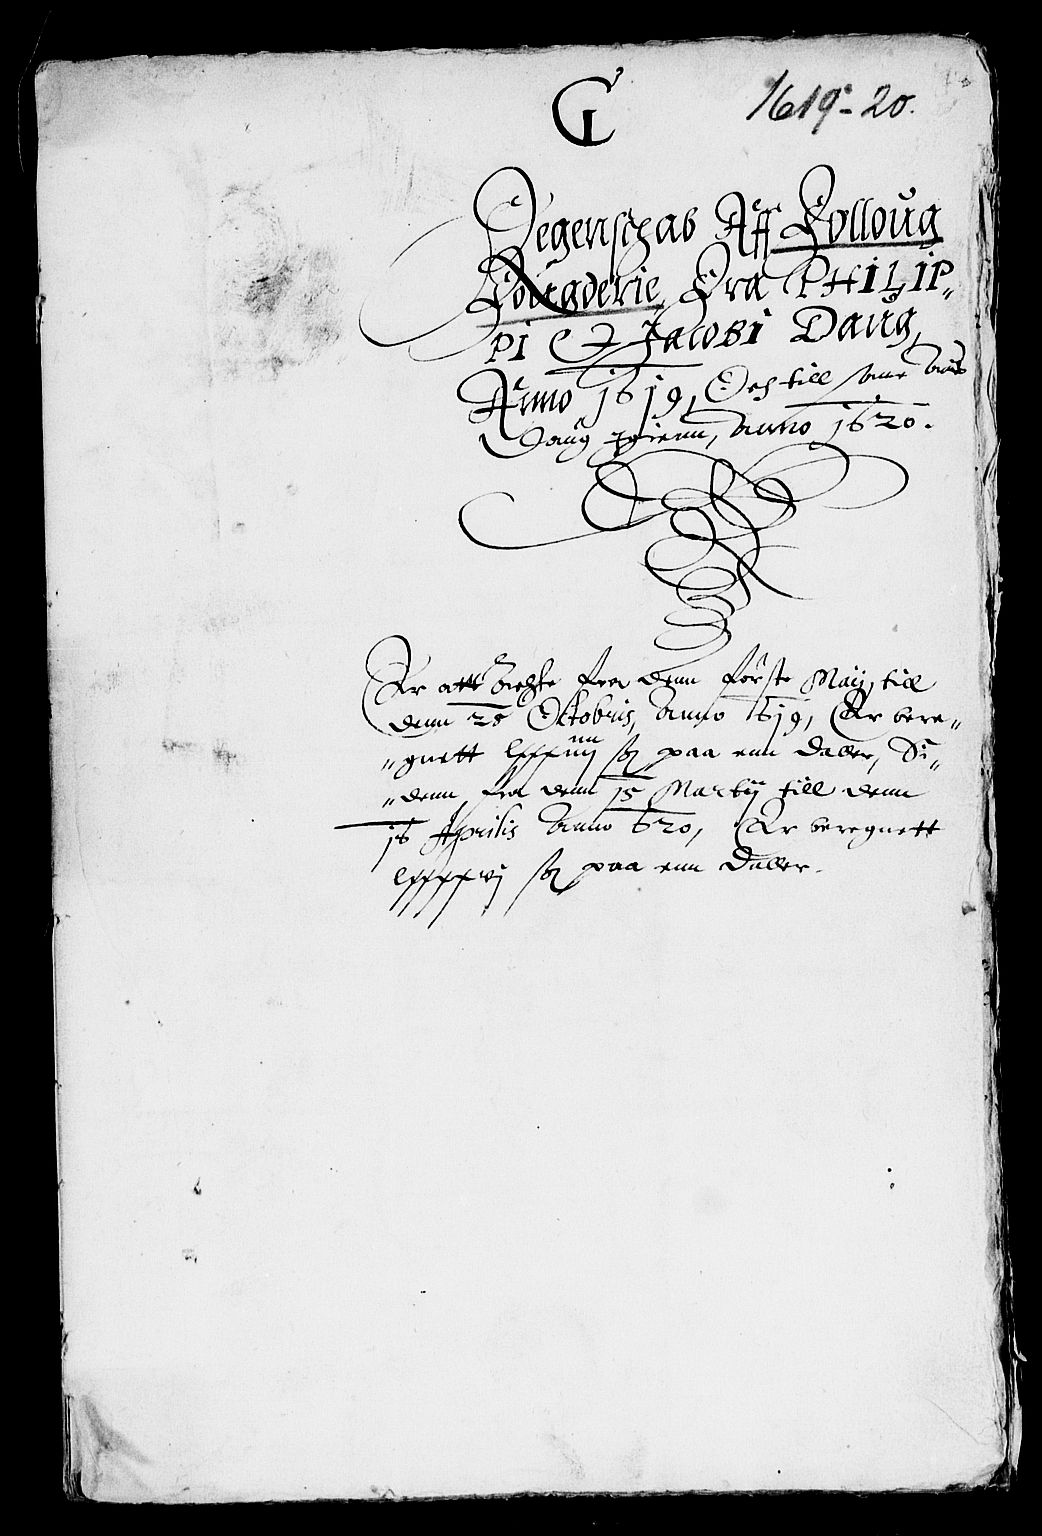 G
1619-20.
Regenschab Aff Folloug
Fougderie, Fra PHILIP„
PI & Jacobi Daug,
Anno 1619, Och till
Daug igienn, Anno 1620.
Er att fra denn förste Maij, till
denn 25 Octobris, Anno 1619, Er bere„
„gnett paa enn Daller, Si„
„denn fra denn 15 Martij till denn
16 Aprilis Anno 620, Er beregnett
lxxxxvj sz paa enn Daller.